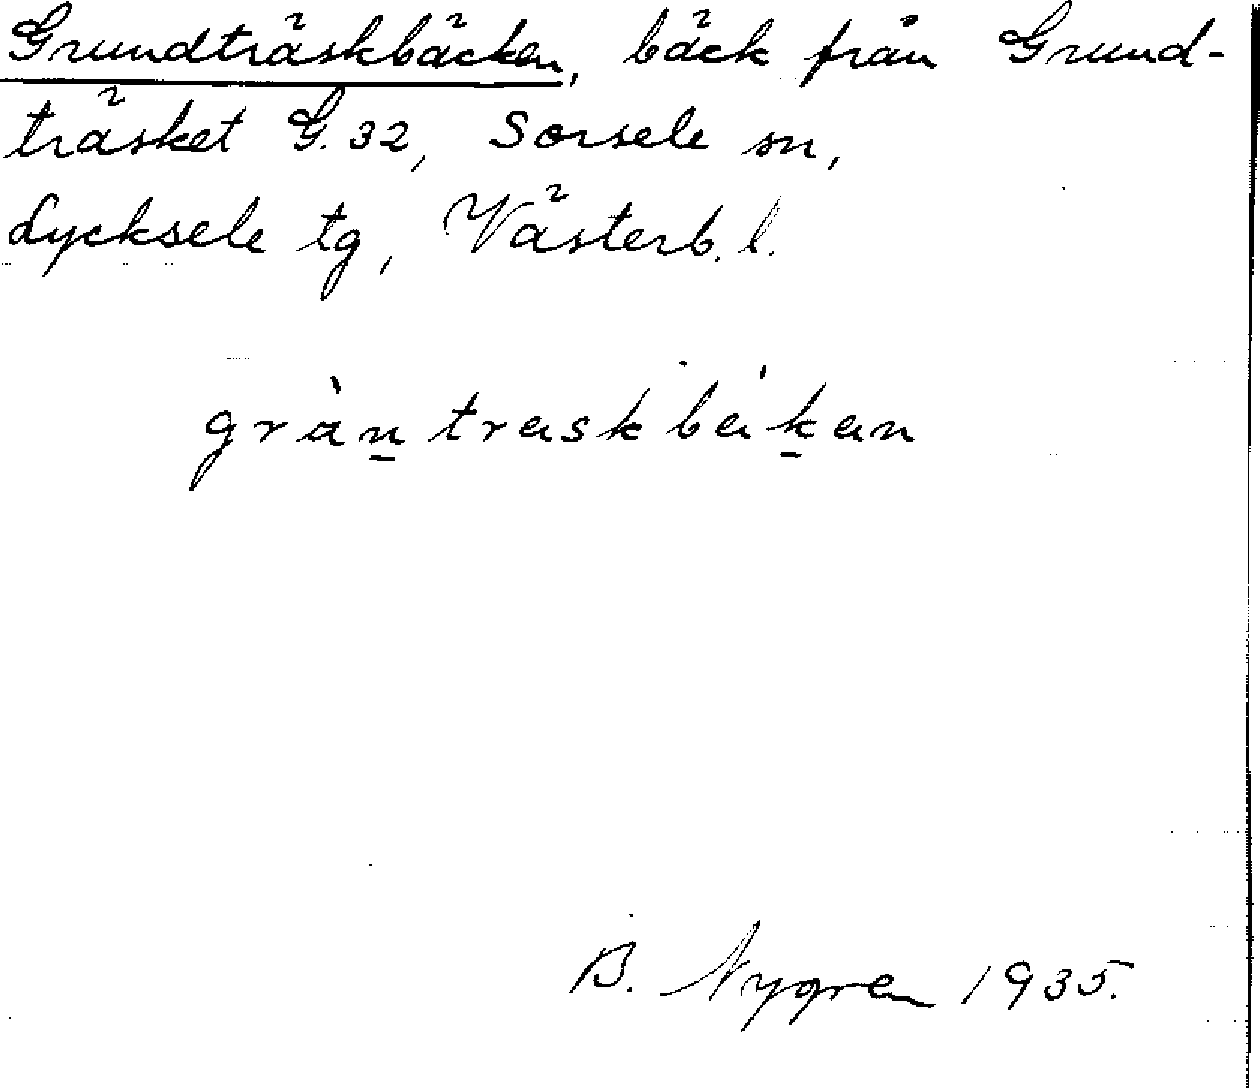 Grundträskbäcken, bäck från Grund-
träsket G.32, Sorsele sn,
Lycksele tg, Västerb. l.
gràn̲træskbǽk̲æn
B. Nygren 1935.